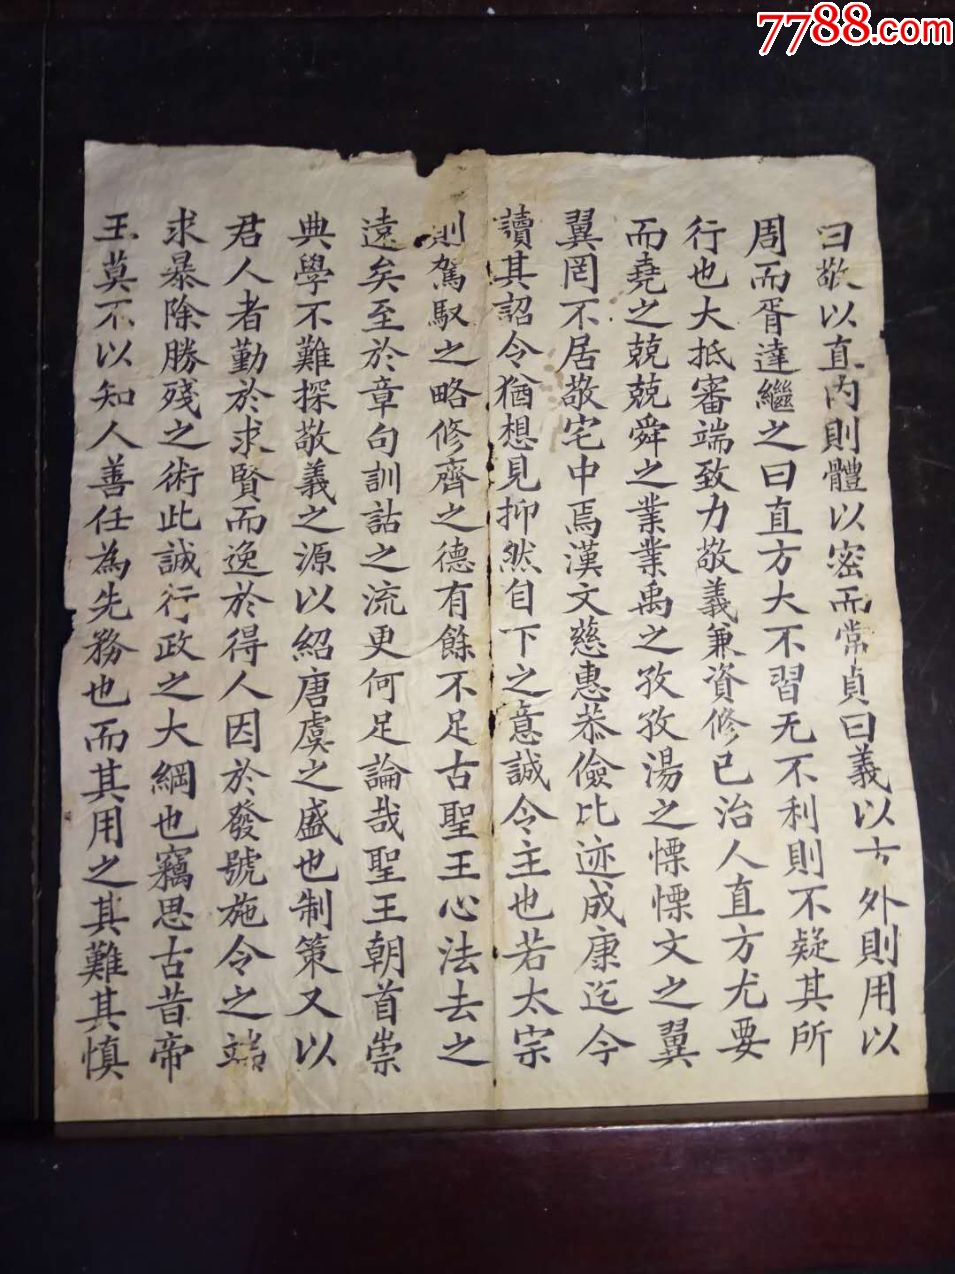 7788.com
曰敬以直內則體以密而常貞曰義以方外則用以
周而胥達繼之曰直方大不習无不利則不疑其所
行也大抵審端致力敬義兼資修已治人直方尤要
而堯之兢兢舜之業業禹之孜孜湯之慄慄文之翼
翼罔不居敬宅中焉漢文慈惠恭儉比迹成康迄今
讀其詔令猶想見抑然自下之意誠令主也若太宗
則駕馭之略修齊之德有餘不足古聖王心法去之
遠矣至於章句訓詁之流更何足論哉聖王朝首崇
典學不難探敬義之源以紹唐虞之盛也制策又以
君人者勤於求賢而逸於得人因於發號施令之端
求暴除勝殘之術此誠行政之大綱也竊思古昔帝
王莫不以知人善任為先務也而其用之其難其慎